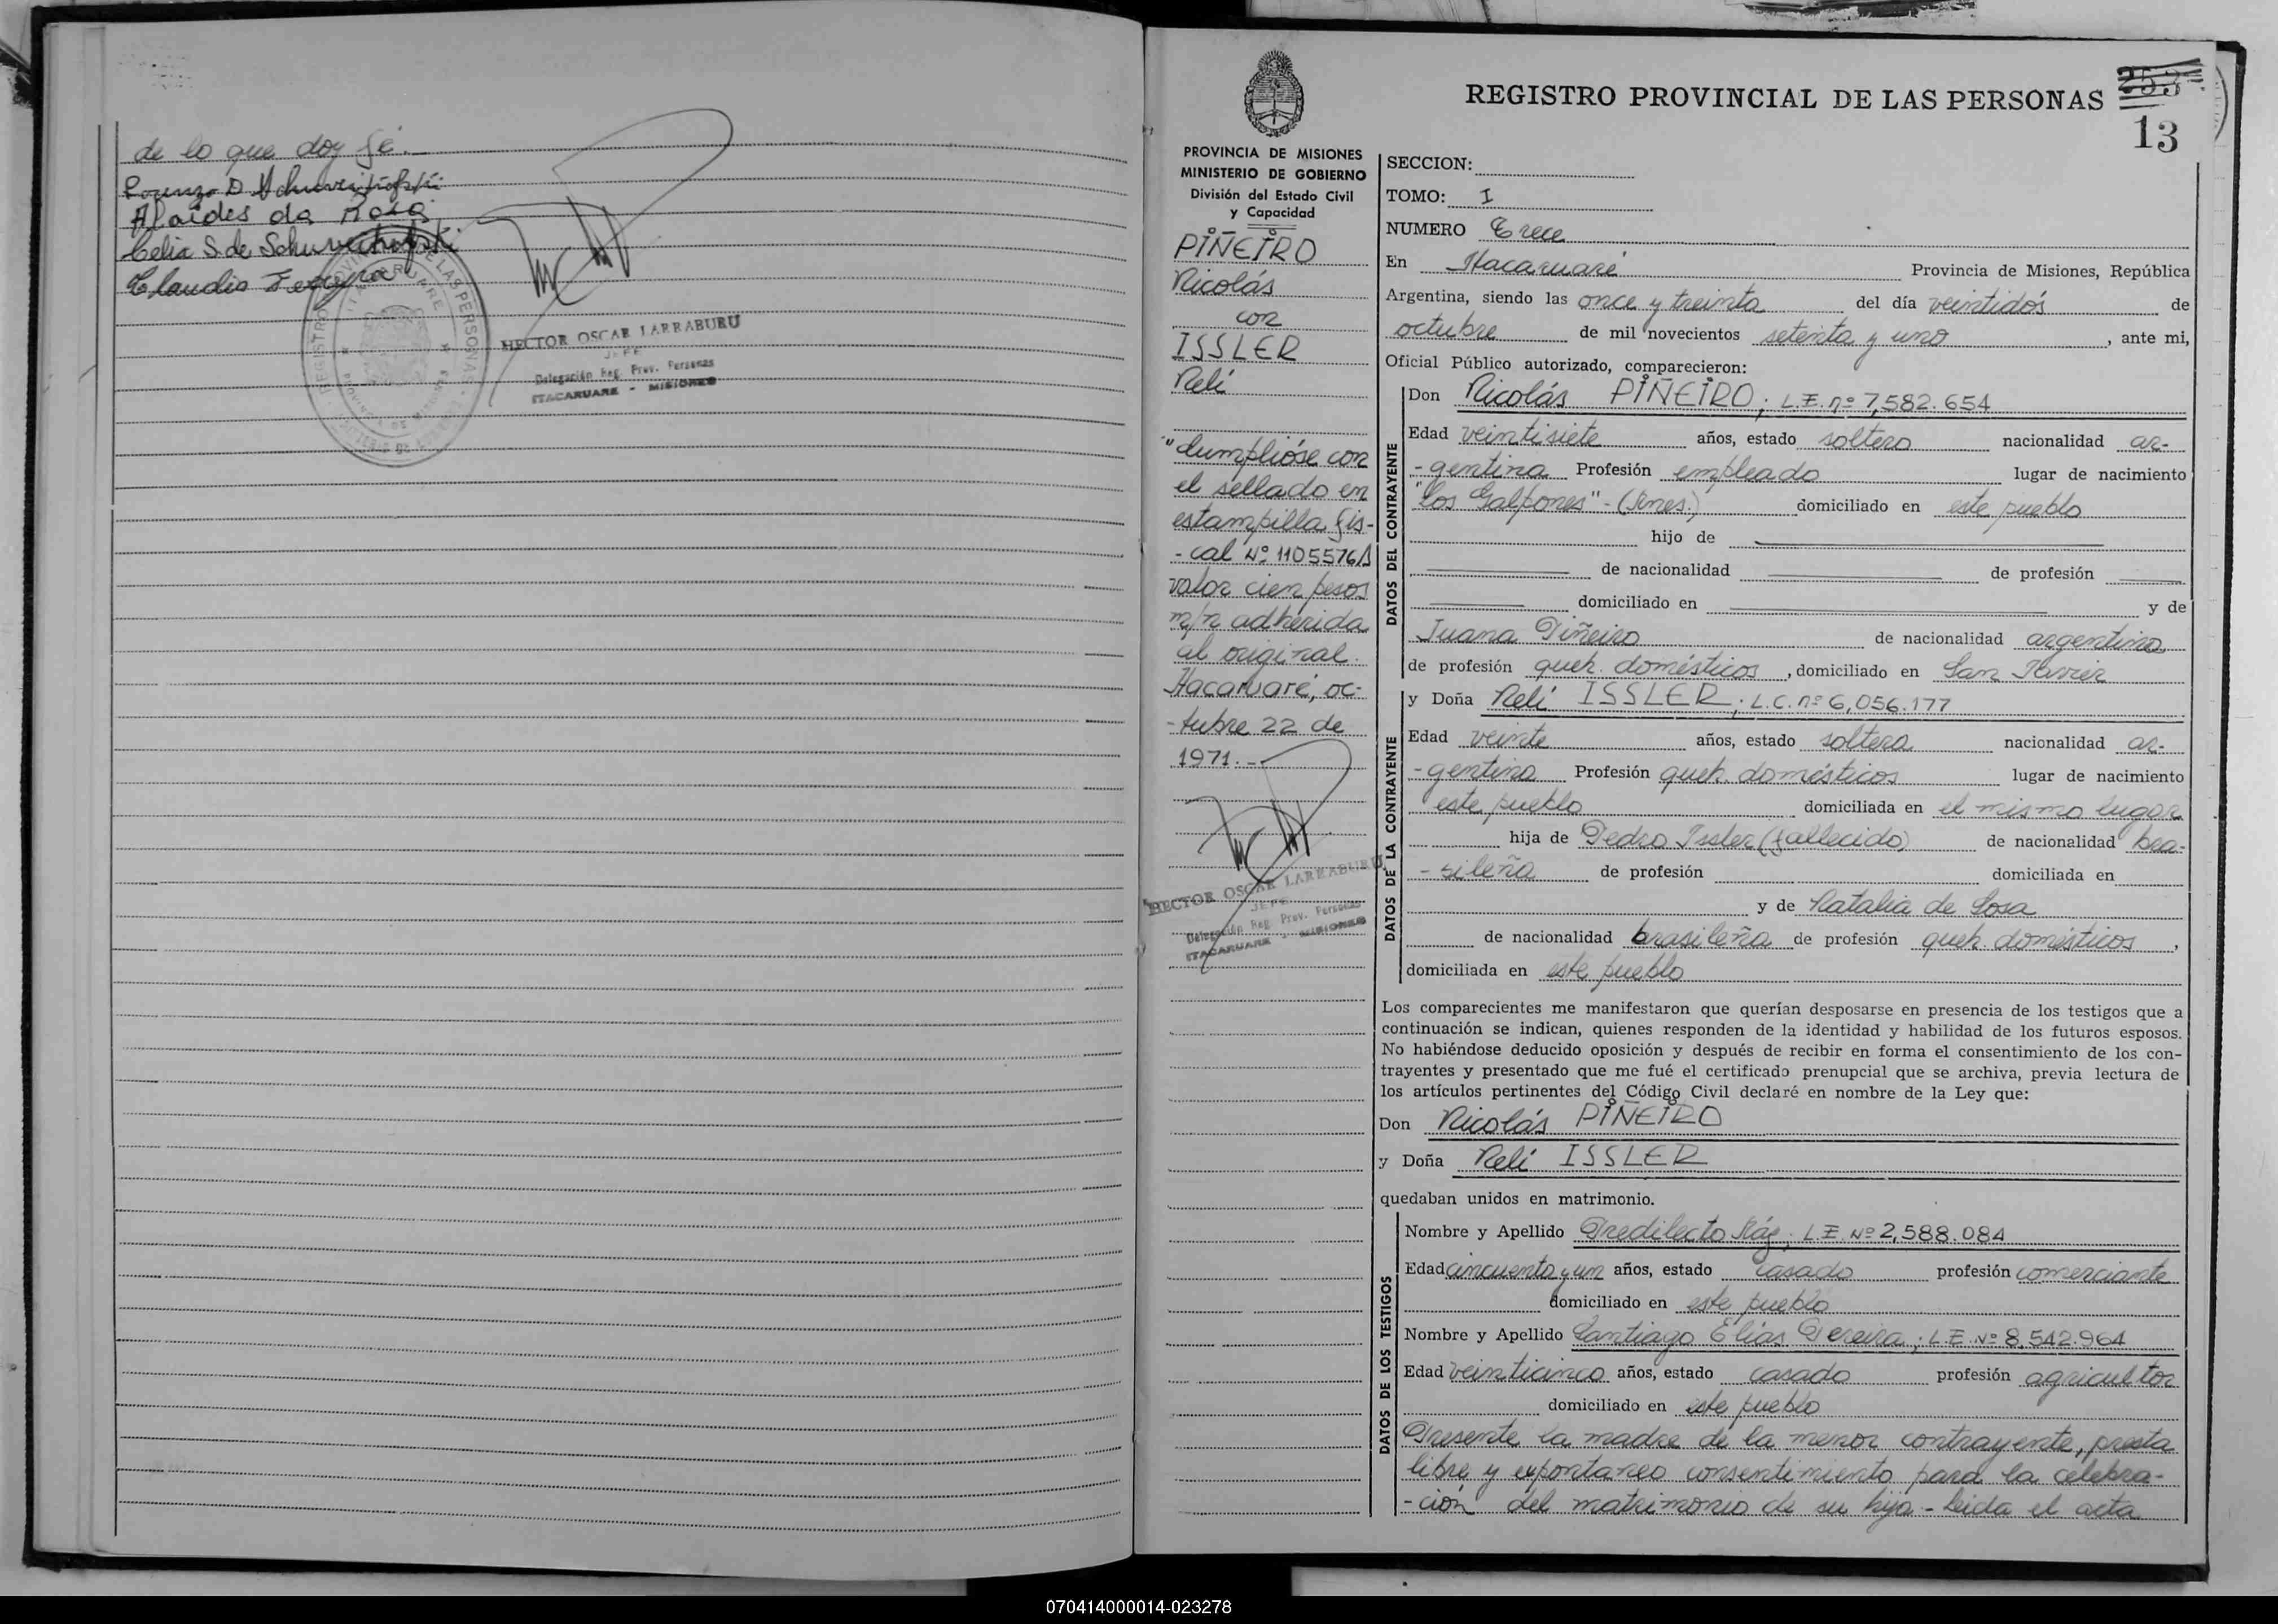 de lo que doy fé.
Lorenzo D
Alaides da Rosa
Celia S. de
Claudio
HECTOR OSCAR LARRABURU
JEFE
Delegación Reg. Prov. Personas
ITACARUARE - MISIONES
REGISTRO PROVINCIAL DE LAS PERSONAS
253
13
PROVINCIA DE MISIONES
MINISTERIO DE GOBIERNO
División del Estado Civil
y Capacidad
PIÑEIRO
Nicolás
con
ISSLER
Nelí
"Cumplióse con
el sellado en
estampilla fis-
-cal Nº 1105576/
valor cien pesos
m/n adherida
al original.
Itacaruaré, oc-
-tubre 22 de
1971.-
HECTOR OSCAR LARRABURU
JEFE
Delegación Reg. Prov. Personas
ITACARUARE - MISIONES
SECCION:
TOMO: I
NUMERO Trece
En Itacaruaré Provincia de Misiones, República
Argentina, siendo las once y treinta del día veintidós de
octubre de mil novecientos setenta y uno, ante mi,
Oficial Público autorizado, comparecieron:
DATOS DEL CONTRAYENTE
Don Nicolás PIÑEIRO; L.E. nº 7,582.654
Edad veintisiete años, estado soltero nacionalidad ar-
-gentina Profesión empleado lugar de nacimiento
"Los Galpones"-(Mnes.) domiciliado en este pueblo
hijo de
de nacionalidad de profesión
domiciliado en y de
Juana Piñeiro de nacionalidad argentina
de profesión queh. domésticos, domiciliado en San Javier
DATOS DE LA CONTRAYENTE
y Doña Nelí ISSLER; L.C. nº 6,056.177
Edad veinte años, estado soltera nacionalidad ar-
-gentina Profesión queh. domésticos lugar de nacimiento
este pueblo domiciliada en el mismo lugar
hija de Pedro Issler (fallecido) de nacionalidad bra-
-sileña de profesión domiciliada en
y de Natalia de Sosa
de nacionalidad brasileña de profesión queh. domésticos,
domiciliada en este pueblo
Los comparecientes me manifestaron que querían desposarse en presencia de los testigos que a
continuación se indican, quienes responden de la identidad y habilidad de los futuros esposos.
No habiéndose deducido oposición y después de recibir en forma el consentimiento de los con-
trayentes y presentado que me fué el certificado prenupcial que se archiva, previa lectura de
los artículos pertinentes del Código Civil declaré en nombre de la Ley que:
Don Nicolás PIÑEIRO
y Doña Nelí ISSLER
quedaban unidos en matrimonio.
DATOS DE LOS TESTIGOS
Nombre y Apellido Predilecto; L.E. Nº 2,588.084
Edad cincuenta y un años, estado casado profesión comerciante
domiciliado en este pueblo
Nombre y Apellido Santiago Elías Pereira; L.E. Nº 8,542.964
Edad veinticinco años, estado casado profesión agricultor
domiciliado en este pueblo
Presente la madre de la menor contrayente, presta
libre y expontaneo consentimiento para la celebra-
-ción del matrimonio de su hija.- Leida el acta
070414000014-023278